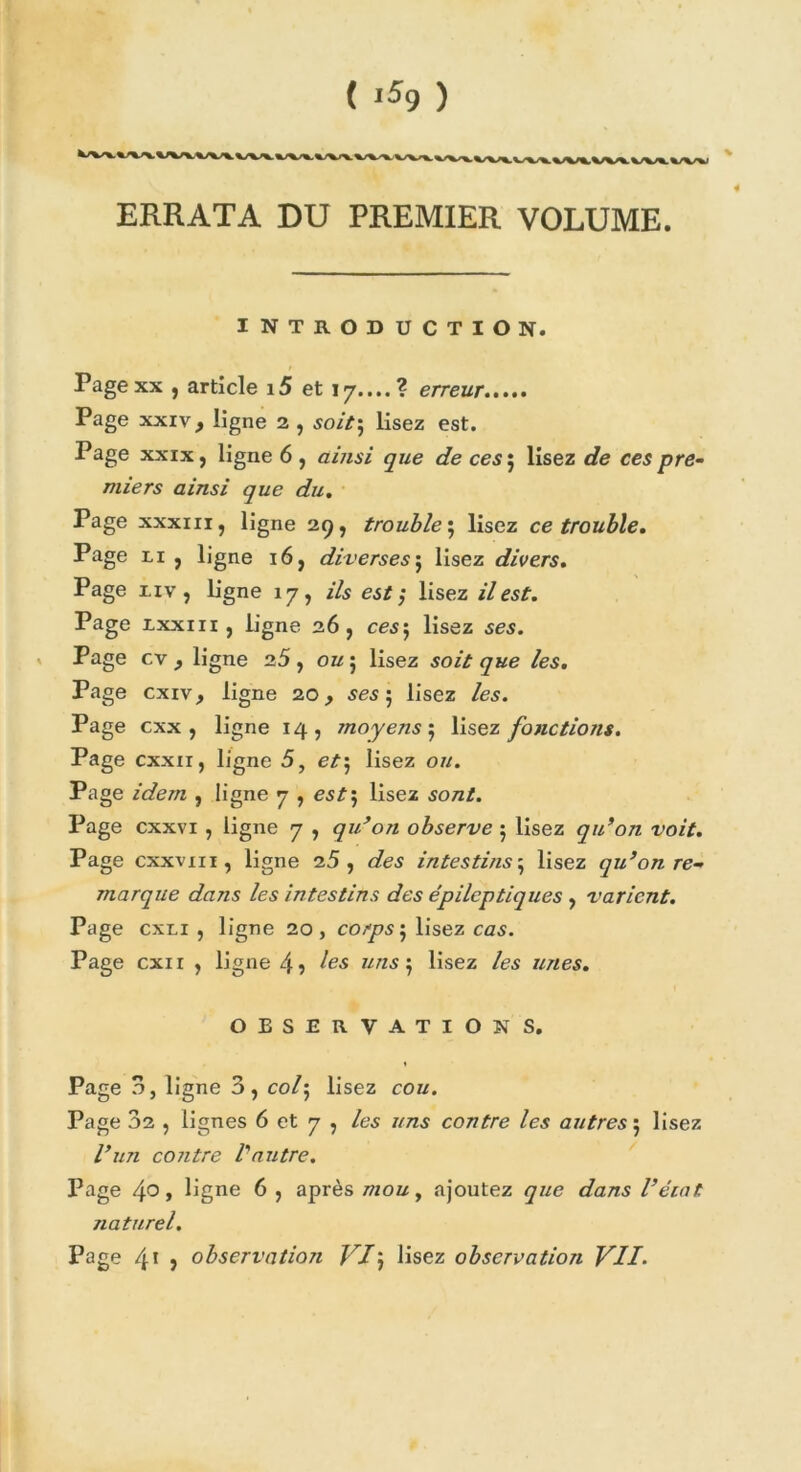 ( 159 )
ERRATA DU PREMIER VOLUME.
INTRODUCTION.
Page xx , article 15 et 17....? erreur.....
Page xxiv, ligne 2 , soit; lisez est.
Page xxix, ligne 6 , ainsi que de ces; lisez de ces pre-
miers ainsi que du.
Page xxxiii, ligne 29, trouble; lisez ce trouble.
Page li , ligne 16, diverses; lisez divers.
Page liv , ligne 17, ils est; lisez il est.
Page lxxiii , ligne 26, ces; lisez ses.
Page cv, ligne 25, ou; lisez soit que les.
Page cxiv, ligne 20, ses; lisez les.
Page cxx , ligne 14, moyens; lisez fonctions.
Page cxxii, ligne 5, et; lisez ou.
Page idem , ligne 7 , est; lisez sont.
Page cxxvi , ligne 7 , qu'on observe ; lisez qu'on voit.
Page cxxviii, ligne 25 , des intestins; lisez qu'on re-
marque dans les intestins des épileptiques , varient.
Page cxli , ligne 20, corps; lisez cas.
Page cxii , ligne 4, les uns; lisez les unes.
OBSERVATIONS.
Page 3, ligne 3, col; lisez cou.
Page 32 , lignes 6 et 7 , les uns contre les autres; lisez
l'un contre l'autre.
Page 40, ligne 6 , après mou, ajoutez que dans l'état
naturel.
Page 41 , observation VI; lisez observation VII.